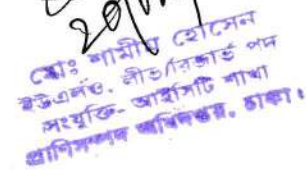 মোঃ শামীম হোসেন
ইউএলও, লীভ/রিজার্ভ পদ
সংযুক্তি- আইসিটি শাখা
প্রাণিসম্পদ অধিদপ্তর, ঢাকা।